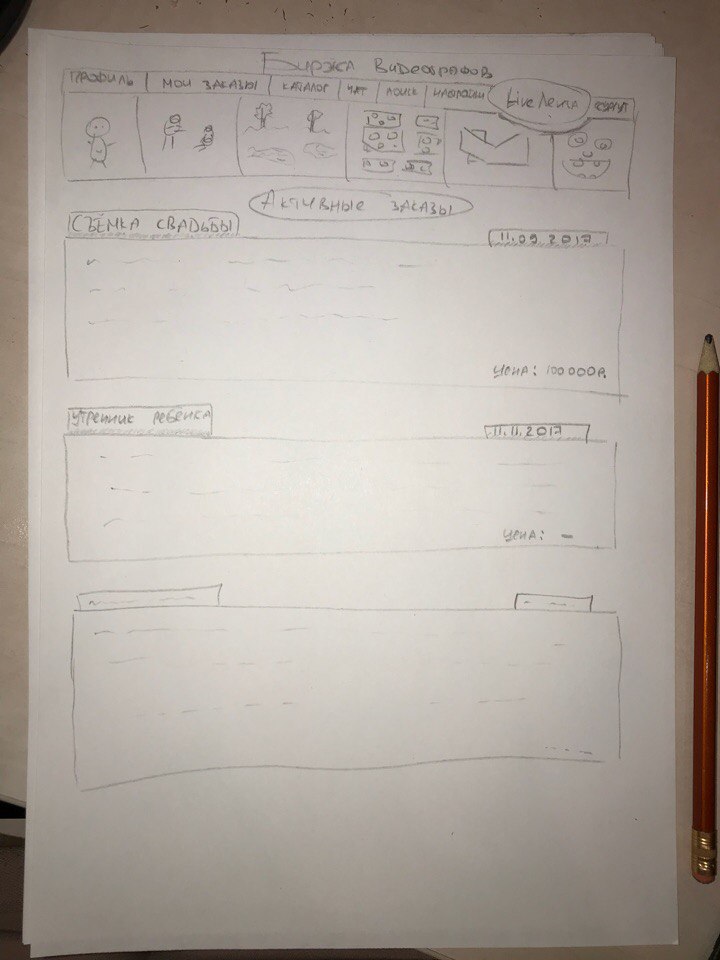 Биржа видеографов
ПРОФИЛЬ МОИ ЗАКАЗЫ КАТАЛОГ ЧАТ ПОИСК НАСТРОЙКИ Live Лента
Активные заказы
СЪЁМКА СВАДЬБЫ
11.09.2017
ЦЕНА: 100000р.
УТРЕННИК РЕБЕНКА
11.11.2017
ЦЕНА: —